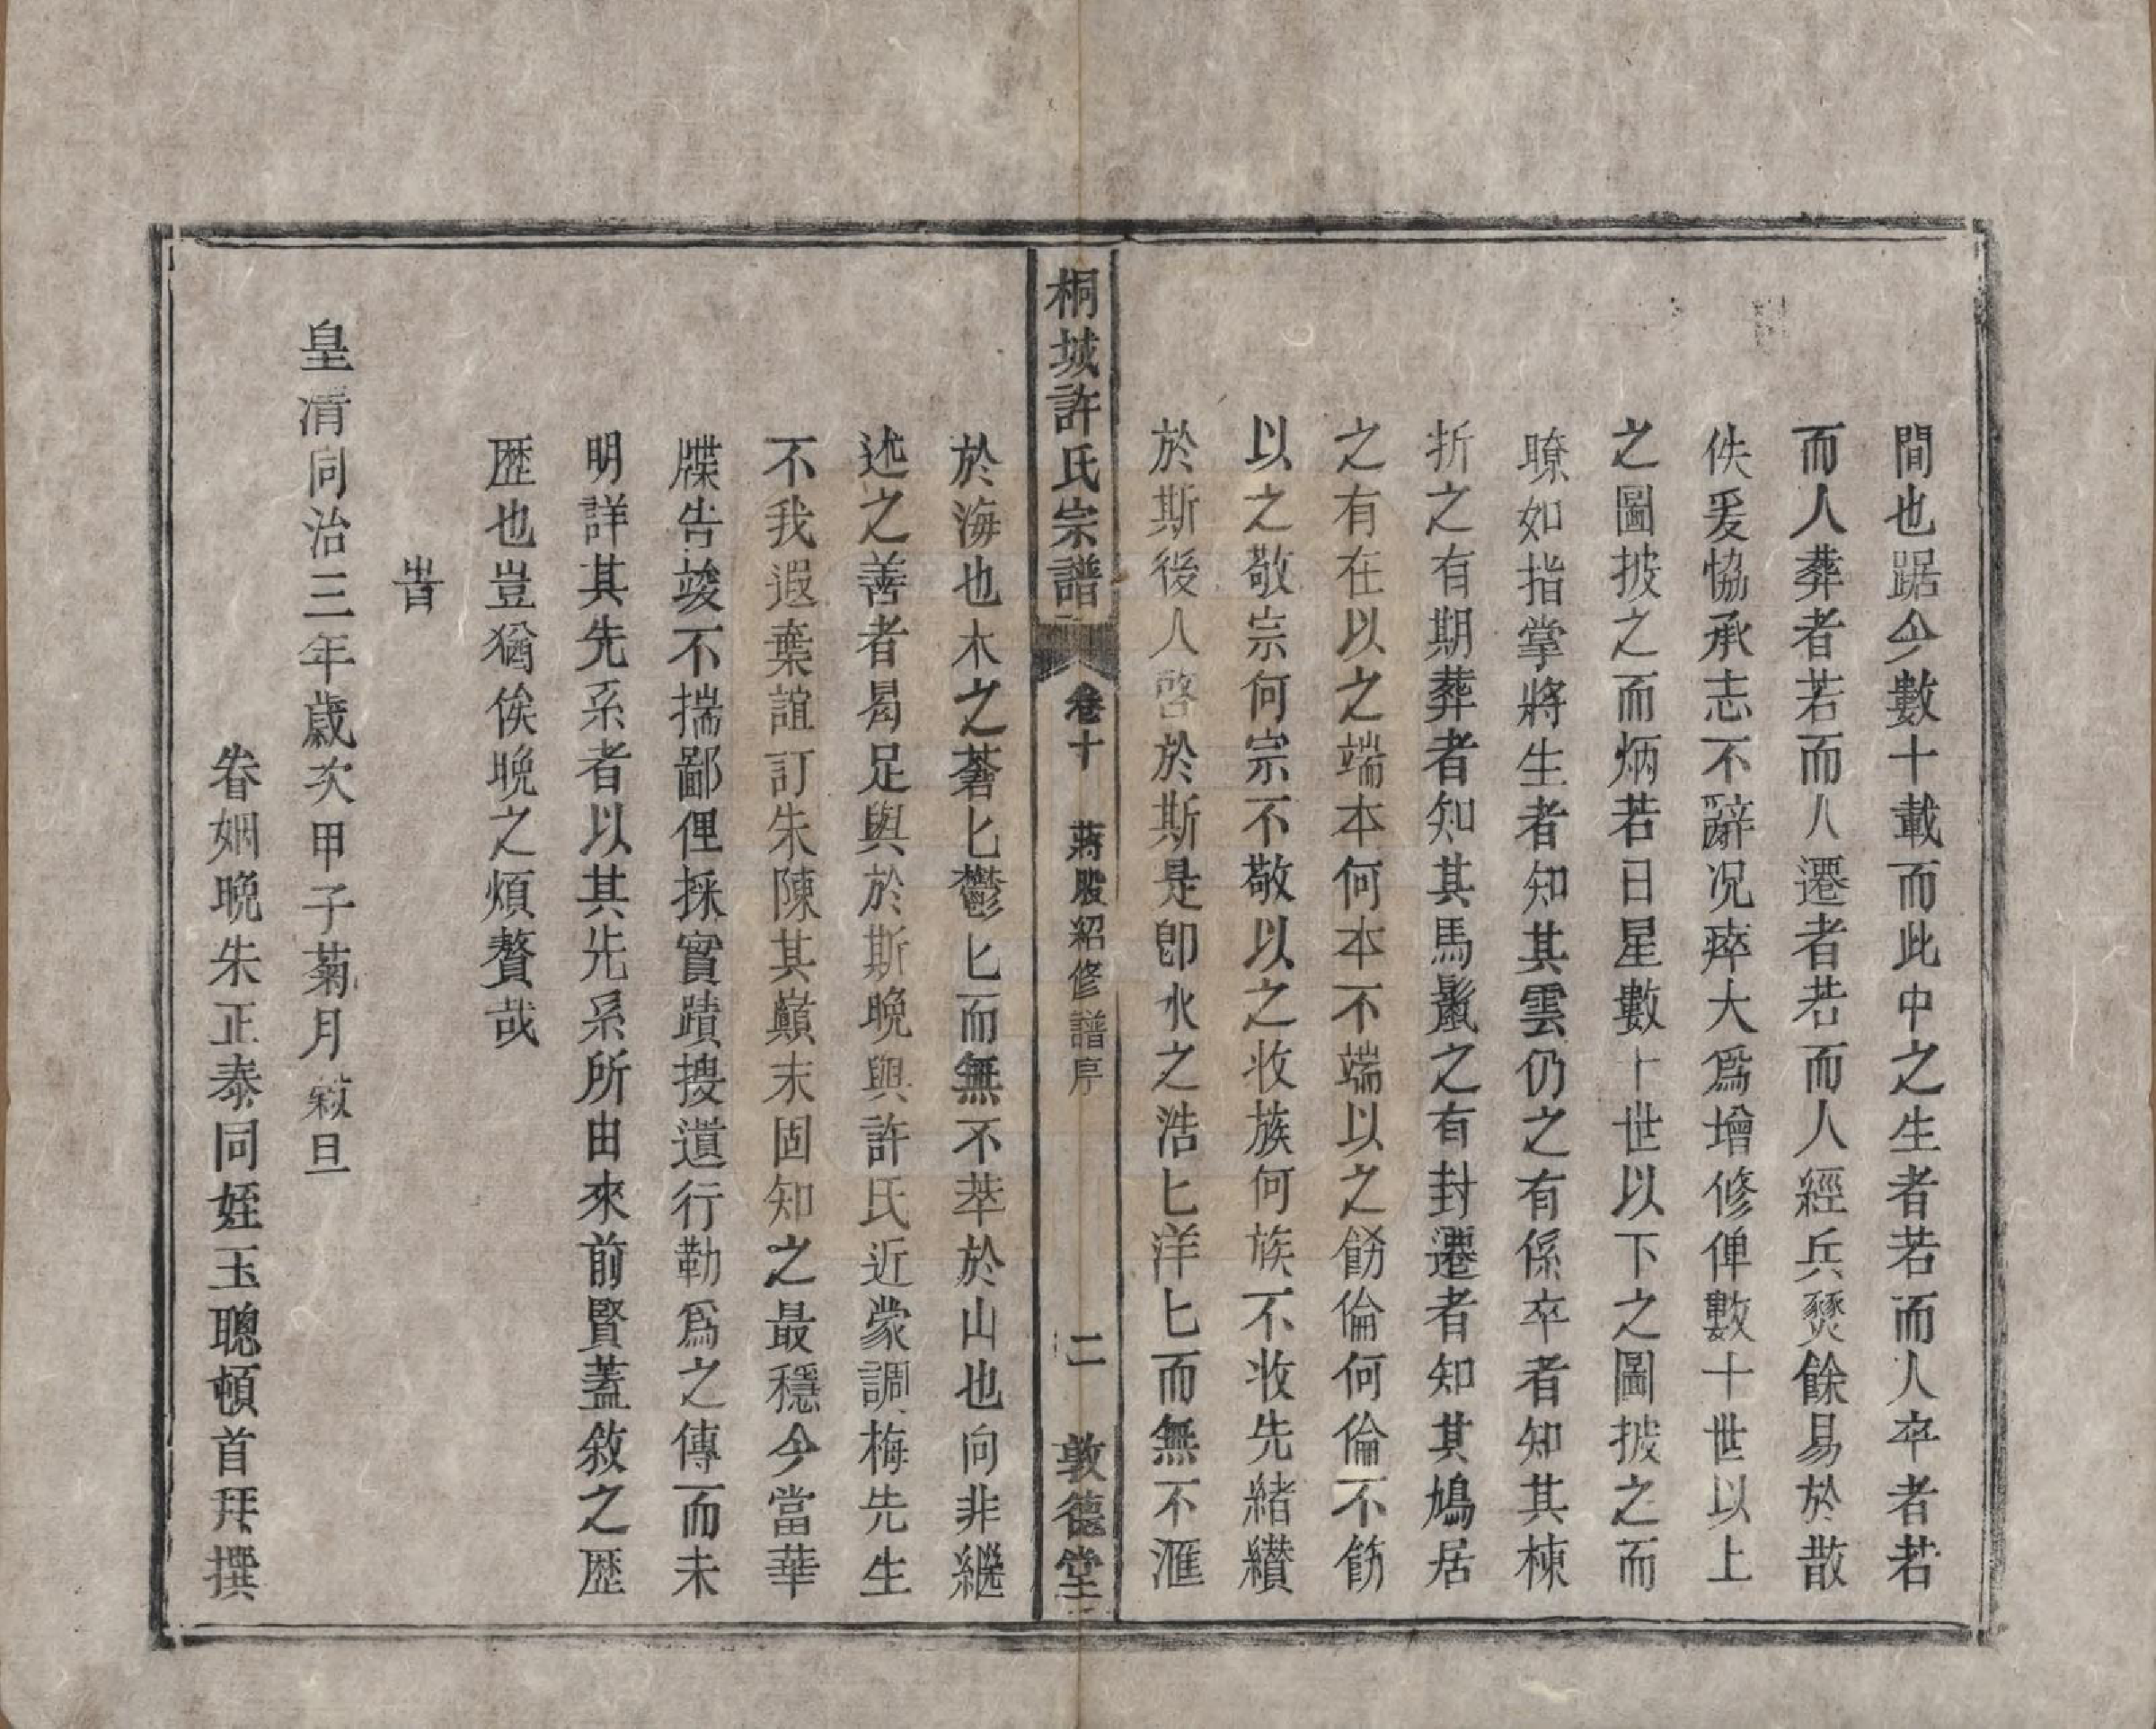 間也踞今數十載而此中之生者若而人卒者若
而人葬者若而人遷者若而人經兵燹餘易於散
佚爰恊承志不辭况瘁大爲增修俾數十世以上
之圖披之而炳若日星數十世以下之圖披之而
暸如指掌將生者知其雲仍之有係卒者知其棟
折之有期葬者知其馬鬛之有封遷者知其鳩居
之有在以之端本何本不端以之餝倫何倫不餝
以之敬宗何宗不敬以之收族何族不收先緒纉
於斯後人啓於斯是卽水之浩匕洋匕而無不滙
桐城許氏宗譜 卷十 蔣股紹修譜序 二 敦德堂
於海也木之蒼匕鬱匕而無不萃於山也向非繼
述之善者曷足與於斯晩與許氏近蒙調梅先生
不我遐棄誼訂朱陳其巔末固知之最穩今當華
牒告竣不揣鄙俚採實蹟搜道行勒爲之傳而未
明詳其先系者以其先系所由來前賢蓋敘之歷
歷也豈猶俟晩之煩贅哉
旹
皇淸同治三年歲次甲子菊月糓旦
眷姻晩朱正泰同姪玉聰頓首拜撰